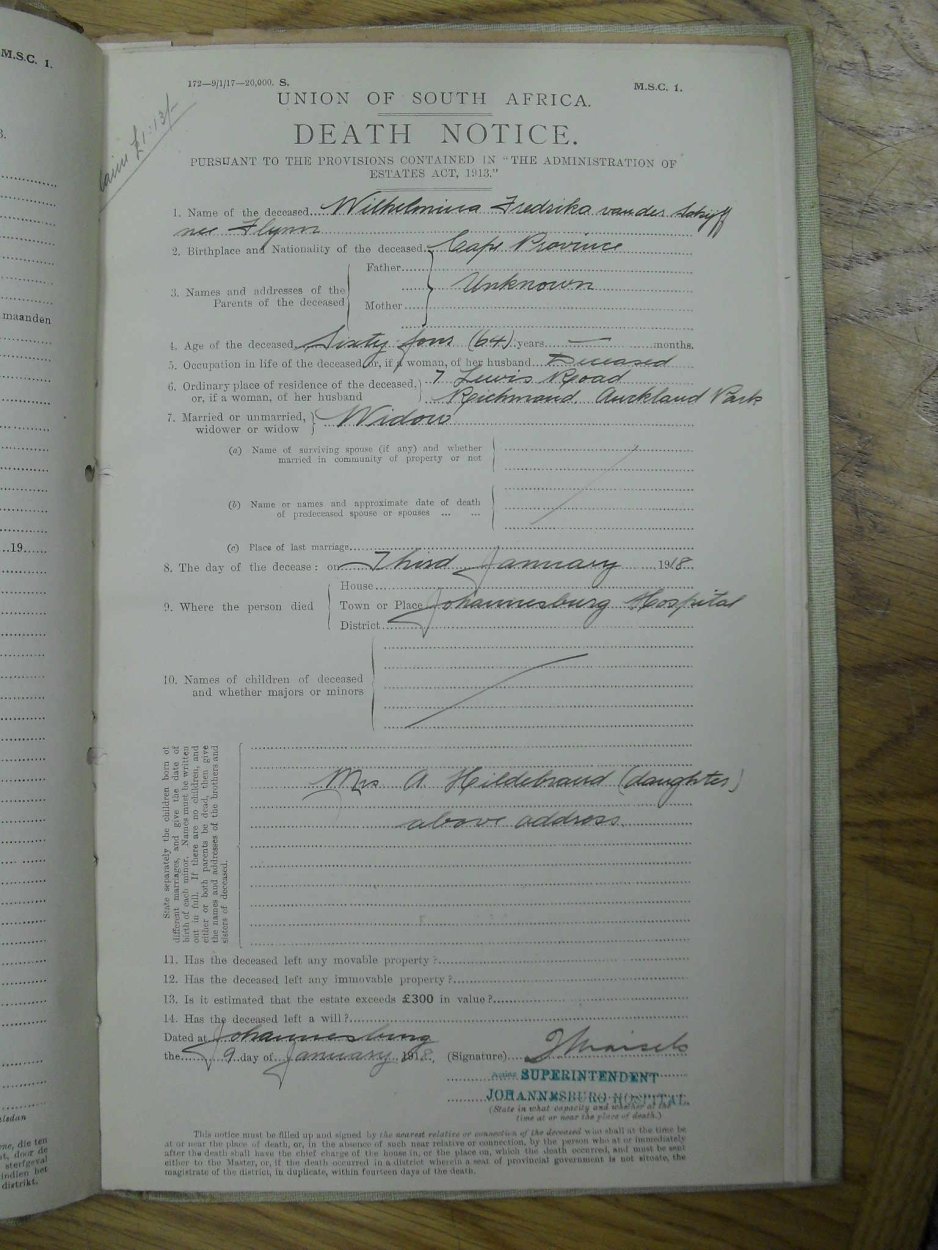 M.S.C. 1.
maanden
19
172—9/1/17—20,000. S.
M.S.C. 1.
£1:13/-
UNION OF SOUTH AFRICA.
DEATH NOTICE.
PURSUANT TO THE PROVISIONS CONTAINED IN "THE ADMINISTRATION OF
ESTATES ACT, 1913."
1. Name of the deceased Wilhelmina Fredrika van der Schyff
nee Flynn
2. Birthplace and Nationality of the deceased Cape Province
3. Names and addresses of the Parents of the deceased
Father
Unknown
Mother
4. Age of the deceased Sixty four (64) years — months.
5. Occupation in life of the deceased, or, if a woman, of her husband Deceased
6. Ordinary place of residence of the deceased, 7 Lewis Road
or, if a woman, of her husband Richmond. Auckland Park
7. Married or unmarried, widower or widow Widow
(a) Name of surviving spouse (if any) and whether
married in community of property or not
(b) Name or names and approximate date of death
of predeceased spouse or spouses ... ...
(c) Place of last marriage
8. The day of the decease: on Third January 1918.
9. Where the person died
House
Town or Place Johannesburg Hospital
District
10. Names of children of deceased
and whether majors or minors
State separately the children born of
different marriages, and give the date of
birth of each minor. Names must be written
out in full. If there are no children, and
either or both parents be dead, then give
the names and addresses of the brothers and
sisters of deceased.
Mrs A. Hildebrand (daughter)
above address.
11. Has the deceased left any movable property?
12. Has the deceased left any immovable property?
13. Is it estimated that the estate exceeds £300 in value?
14. Has the deceased left a will?
Dated at Johannesburg
the 9 day of January 1918. (Signature)
SUPERINTENDENT
JOHANNESBURG HOSPITAL.
(State in what capacity and whether at the
time at or near the place of death.)
This notice must be filled up and signed by the nearest relative or connection of the deceased who shall at the time be
at or near the place of death, or, in the absence of such near relative or connection, by the person who at or immediately
after the death shall have the chief charge of the house in, or the place on, which the death occurred, and must be sent
either to the Master, or, if the death occurred in a district wherein a seat of provincial government is not situate, the
magistrate of the district, in duplicate, within fourteen days of the death.
die ten
door de
sterfgeval
indien het
distrikt.